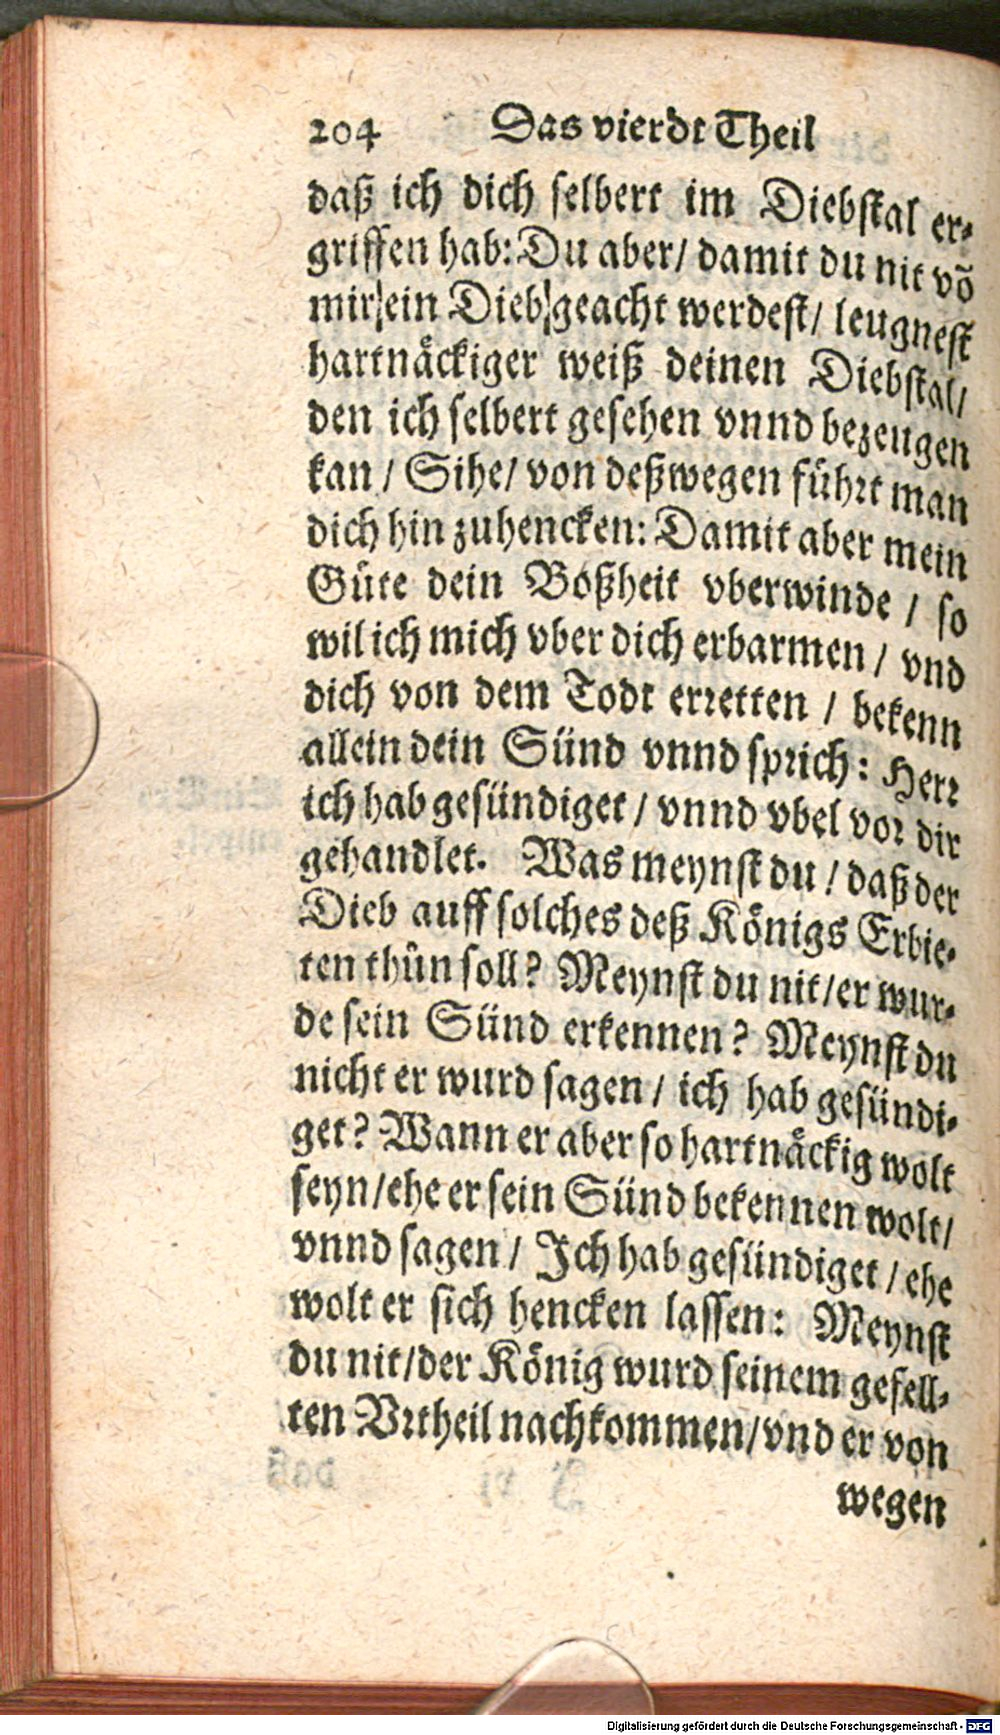 204 Das vierdt Theil
daß ich dich selbert im Diebstal er-
griffen hab: Du aber/ damit du nit võ
mir/ein Dieb/geacht werdest/ leugnest
hartnäckiger weiß deinen Diebstal/
den ich selbert gesehen vnnd bezeugen
kan / Sihe/ von deßwegen führt man
dich hin zuhencken: Damit aber mein
Güte dein Boßheit vberwinde / so
wil ich mich vber dich erbarmen / vnd
dich von dem Todt erretten / bekenn
allein dein Sünd vnnd sprich: Herr
ich hab gesündiget / vnnd vbel vor dir
gehandlet. Was meynst du / daß der
Dieb auff solches deß Königs Erbie-
ten thün soll? Meynst du nit/er wur-
de sein Sünd erkennen? Meynst du
nicht er wurd sagen / ich hab gesündi-
get? Wann er aber so hartnäckig wolt
seyn/ehe er sein Sünd bekennen wolt/
vnnd sagen / Ich hab gesündiget / ehe
wolt er sich hencken lassen: Meynst
du nit/der König wurd seinem gefell-
ten Vrtheil nachkommen/vnd er von
wegen
Digitalisierung gefördert durch die Deutsche Forschungsgemeinschaft - DFG